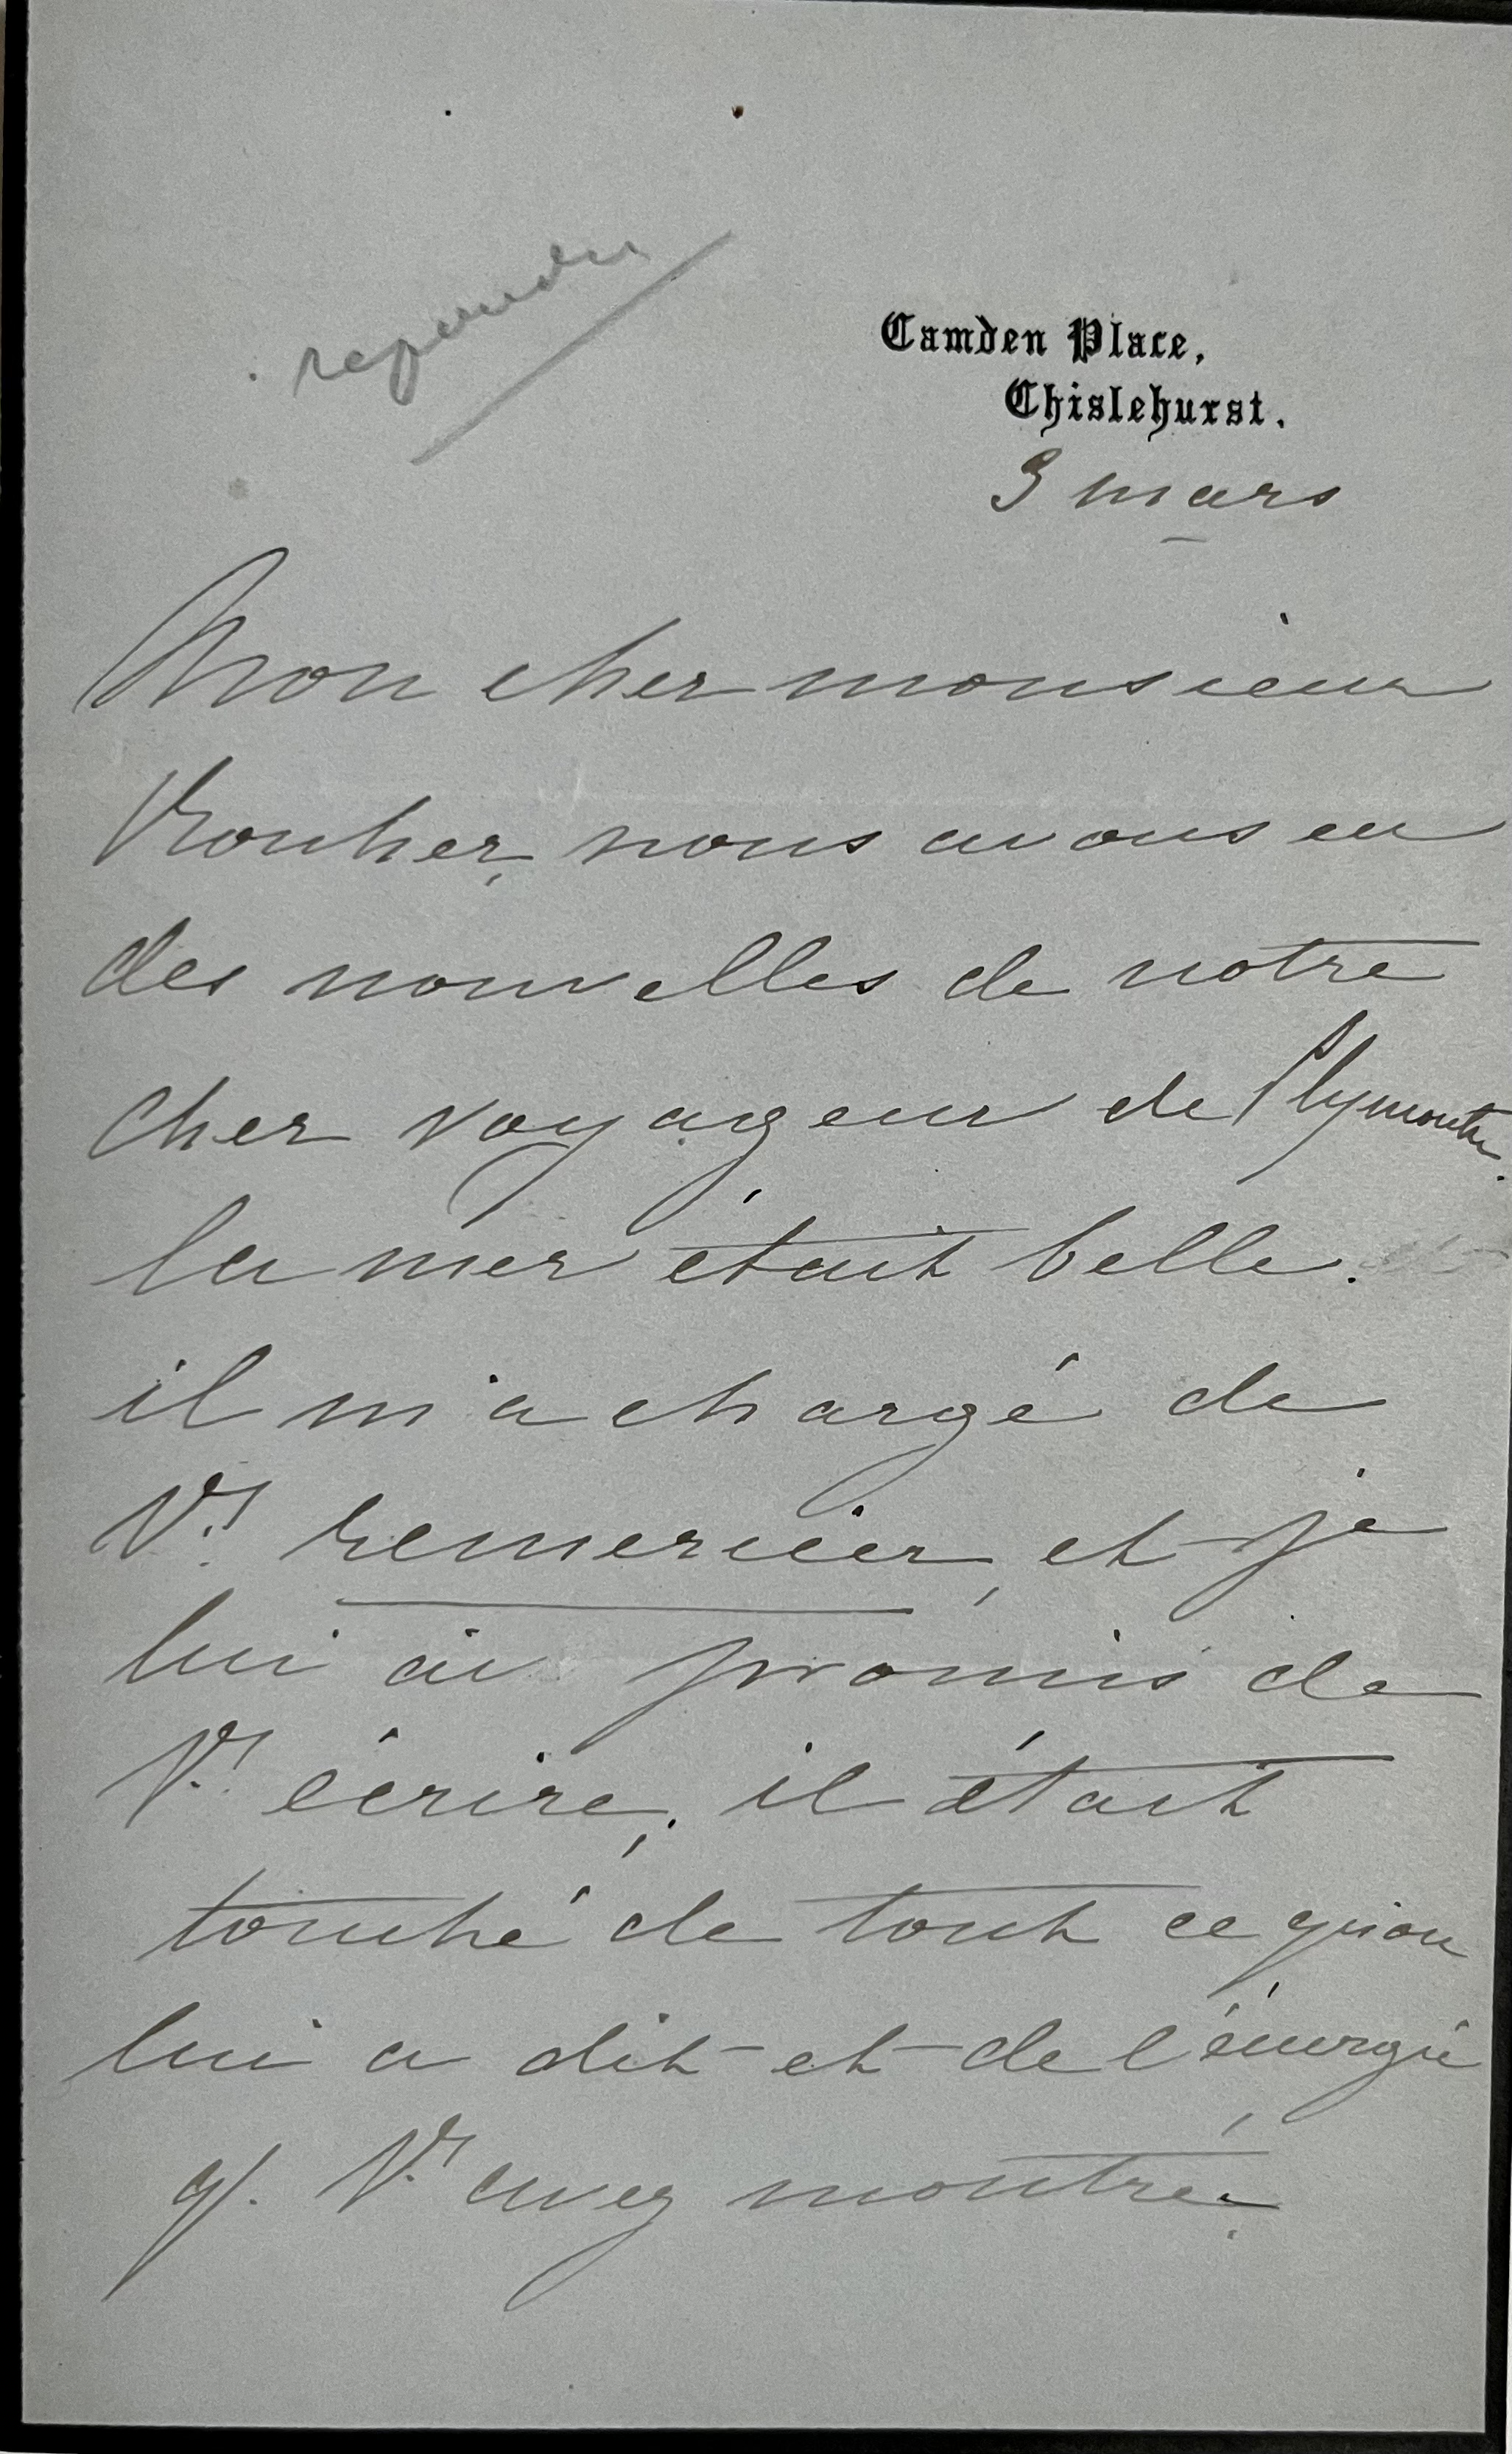 repondu
Camden Place,
Chislehurst.
3 mars
Mon cher monsieur
Rouher, nous avons eu
des nouvelles de notre
cher voyageur de Plymouth.
la mer était belle.
il m'a chargé de
Vs remercier, et je
lui ai promis de
Vs écrire, il était
touché de tout ce qu'on
lui a dit et de l'énergie
q. Vs avez montrée.